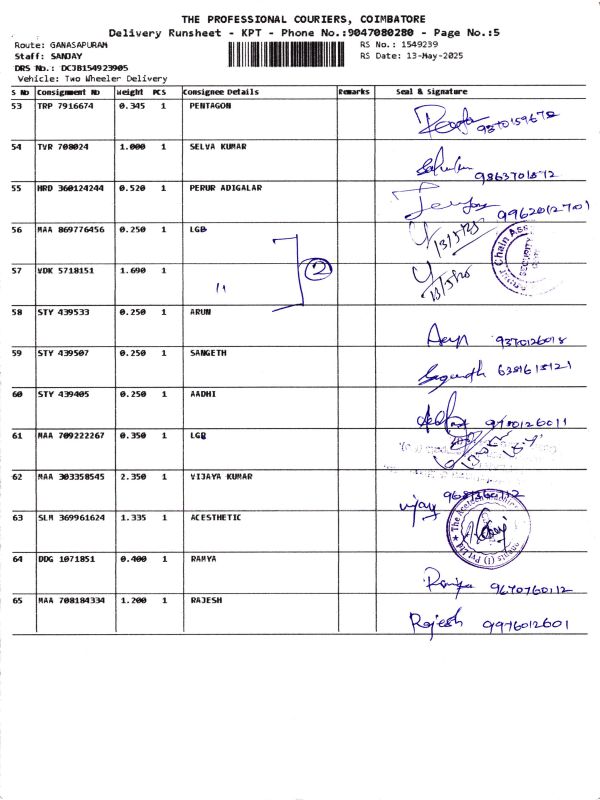 THE PROFESSIONAL COURIERS, COIMBATORE
Delivery Runsheet - KPT - Phone No.:9047080280 - Page No.:5
Route: GANASAPURAM RS No.: 1549239
Staff: SANJAY RS Date: 13-May-2025
DRS No.: DCJB154923905
Vehicle: Two Wheeler Delivery
S No Consignment No Weight PCS Consignee Details Remarks Seal & Signature
53 TRP 7916674 0.345 1 PENTAGON
54 TVR 708024 1.000 1 SELVA KUMAR
9863701872
55 HRD 360124244 0.520 1 PERUR ADIGALAR
9962012701
56 MAA 869776456 0.250 1 LGB
13/5/25
57 VDK 5718151 1.690 1 " 2
13/5/25
SECURITY
58 STY 439533 0.250 1 ARUN
59 STY 439507 0.250 1 SANGETH
60 STY 439405 0.250 1 AADHI
61 MAA 709222267 0.350 1 LGB
62 MAA 303358545 2.350 1 VIJAYA KUMAR
vijay
63 SLM 369961624 1.335 1 ACESTHETIC
64 DDG 1071851 0.400 1 RAMYA
Ramya 9670760112
65 MAA 708184334 1.200 1 RAJESH
Rajesh 9976012601